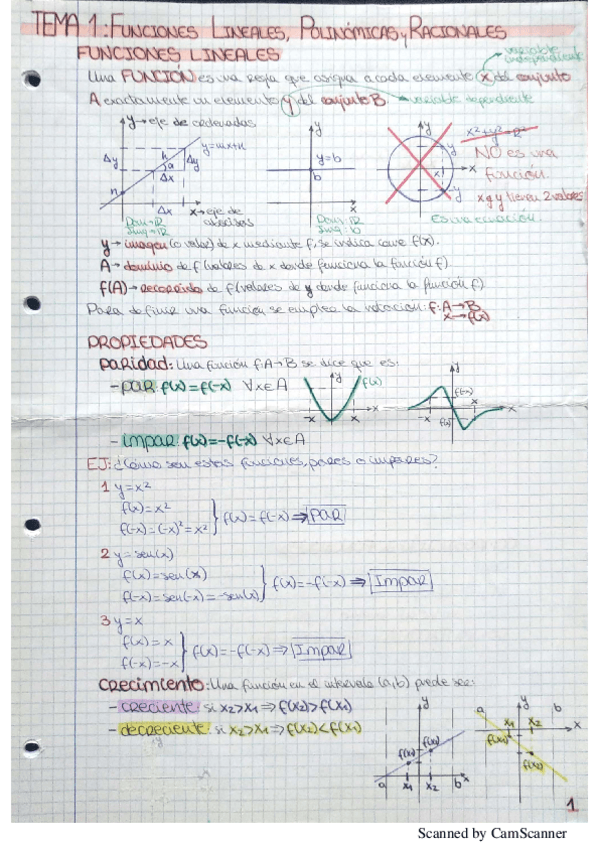 TEMA 1: FUNCIONES LINEALES, POLINÓMICAS y RACIONALES
FUNCIONES LINEALES
variable independiente
Una FUNCIÓN es una regla que asigna a cada elemento x del conjunto
A exactamente un elemento y del conjunto B.
variable dependiente
y→eje de ordenadas
y=mx+n
Δy
h
Δy
α
Δx
n
Δx
x→eje de abscisas
Dom→ℝ
Img→ℝ
y
y=b
b
x
Dom→ℝ
Img→b
y
x
x
y
y
x²+y²=R²
NO es una
función.
x e y tienen 2 valores
Es una ecuación.
y→imagen (o valor) de x mediante f, se indica como f(x).
A→dominio de f (valores de x donde funciona la función f).
f(A)→recorrido de f (valores de y donde funciona la función f)
Para definir una función se emplea la notación: f: A→B
x→f(x)
PROPIEDADES
Paridad: Una función f: A→B se dice que es:
-par: f(x)=f(-x) ∀x∈A
y
f(x)
-x
x
x
y
f(-x)
x
-x
f(x)
x
-impar: f(x)=-f(-x) ∀x∈A
EJ: ¿Cómo son estas funciones, pares o impares?
1 y=x²
f(x)=x²
f(-x)=(-x)²=x²
} f(x)=f(-x)⇒PAR
2 y=sen(x)
f(x)=sen(x)
f(-x)=sen(-x)=-sen(x)
} f(x)=-f(-x)⇒Impar
3 y=x
f(x)=x
f(-x)=-x
} f(x)=-f(-x)⇒Impar
Crecimiento: Una función en el intervalo (a,b) puede ser:
-creciente: si x2>x1⇒f(x2)>f(x1)
-decreciente: si x2>x1⇒f(x2)<f(x1)
y
f(x1)
f(x2)
a
x1
x2
b
x
a
y
b
x1
x2
x
f(x1)
f(x2)
1
Scanned by CamScanner